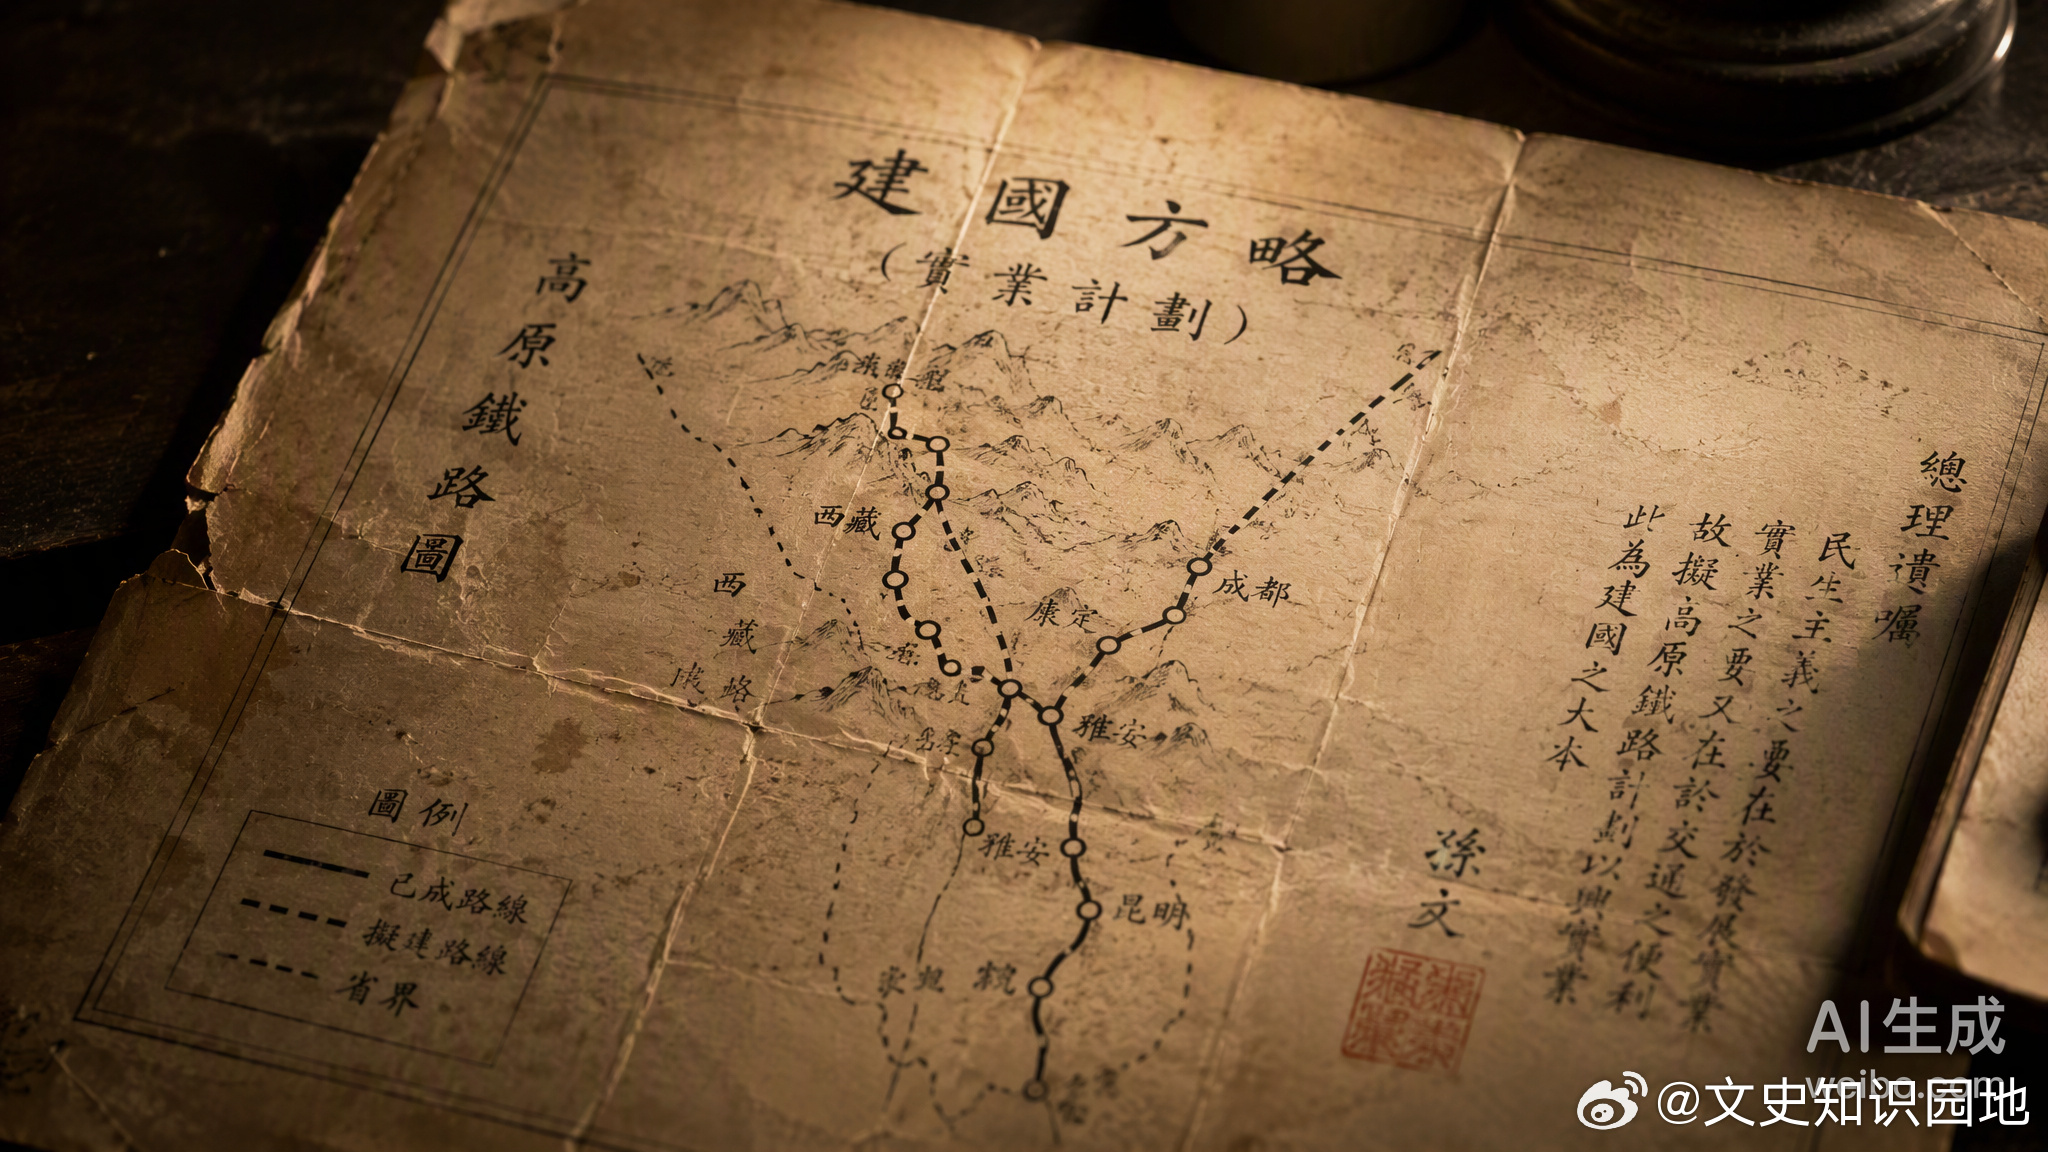 建國方略
（實業計劃）
高原鐵路圖
總理遺囑
民生主義之要在於發展實業
實業之要又在於交通之便利
故擬高原鐵路計劃以興實業
此為建國之大本
孫文
西藏
西藏
成都
康定
雅安
雅安
昆明
圖例
已成路線
擬建路線
省界
AI生成
weibo.com
@文史知识园地